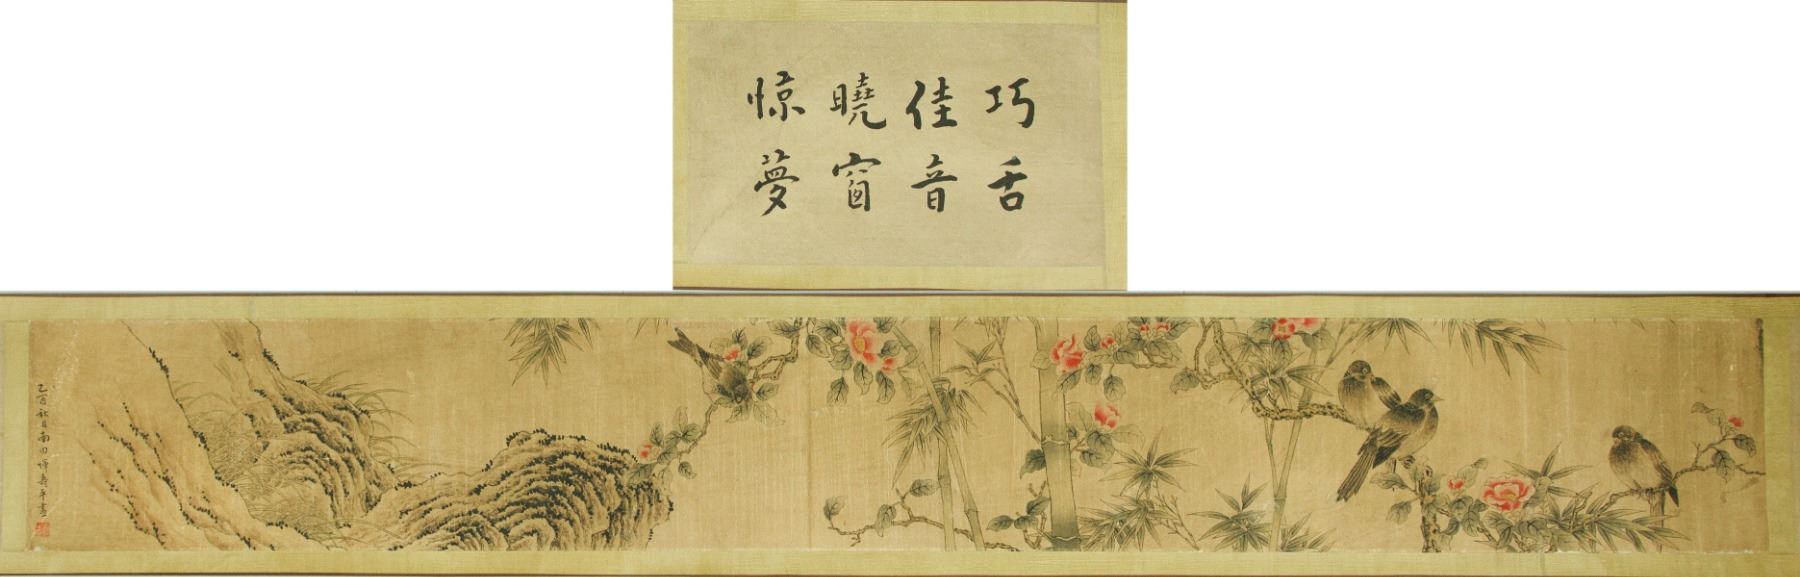 巧舌
佳音
曉窗
惊夢
乙酉秋日南田惲壽平畫